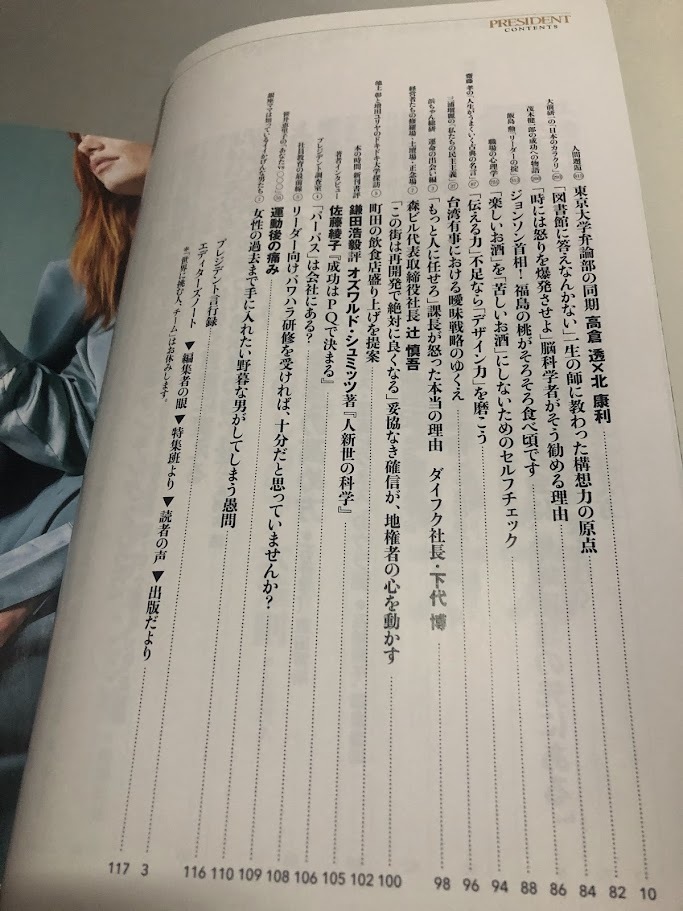 PRESIDENT
CONTENTS
人間邂逅
東京大学弁論部の同期 高倉 透×北 康利
10
大前研一の「日本のカラクリ」
「図書館に答えなんかない」一生の師に教わった構想力の原点
82
茂木健一郎の成功への物語
「時には怒りを爆発させよ」脳科学者がそう勧める理由
84
飯島 勲「リーダーの掟」
ジョンソン首相！福島の桃がそろそろ食べ頃です
86
職場の心理学
「楽しいお酒」を「苦しいお酒」にしないためのセルフチェック
88
齋藤 孝の「人生がうまくいく古典の名言」
「伝える力」不足なら「デザイン力」を磨こう
94
三浦瑠麗の「私たちの民主主義」
台湾有事における曖昧戦略のゆくえ
96
浜ちゃん総研 運命の出会い編
「もっと人に任せろ」課長が怒った本当の理由 ダイフク社長・下代 博
98
経営者たちの修羅場・土壇場・正念場
森ビル代表取締役社長 辻 慎吾
「この街は再開発で絶対に良くなる」妥協なき確信が、地権者の心を動かす
100
池上 彰と増田ユリヤのドキドキ大学探訪
町田の飲食店盛り上げを提案
102
本の時間 新刊書評
鎌田浩毅評 オズワルド・シュミッツ著『人新世の科学』
105
著者インタビュー
佐藤綾子『成功はPQで決まる』
106
プレジデント調査室
「パーパス」は会社にある？
106
社員教育の最前線
リーダー向けパワハラ研修を受ければ、十分だと思っていませんか？
108
運動後の痛み
109
銀座ママは知っている
女性の過去まで手に入れたい野暮な男がしてしまう愚問
110
プレジデント言行録
116
エディターズノート
3
▼編集者の眼 ▼特集班より ▼読者の声 ▼出版だより
117
＊「世界に挑む人、チーム」はお休みします。